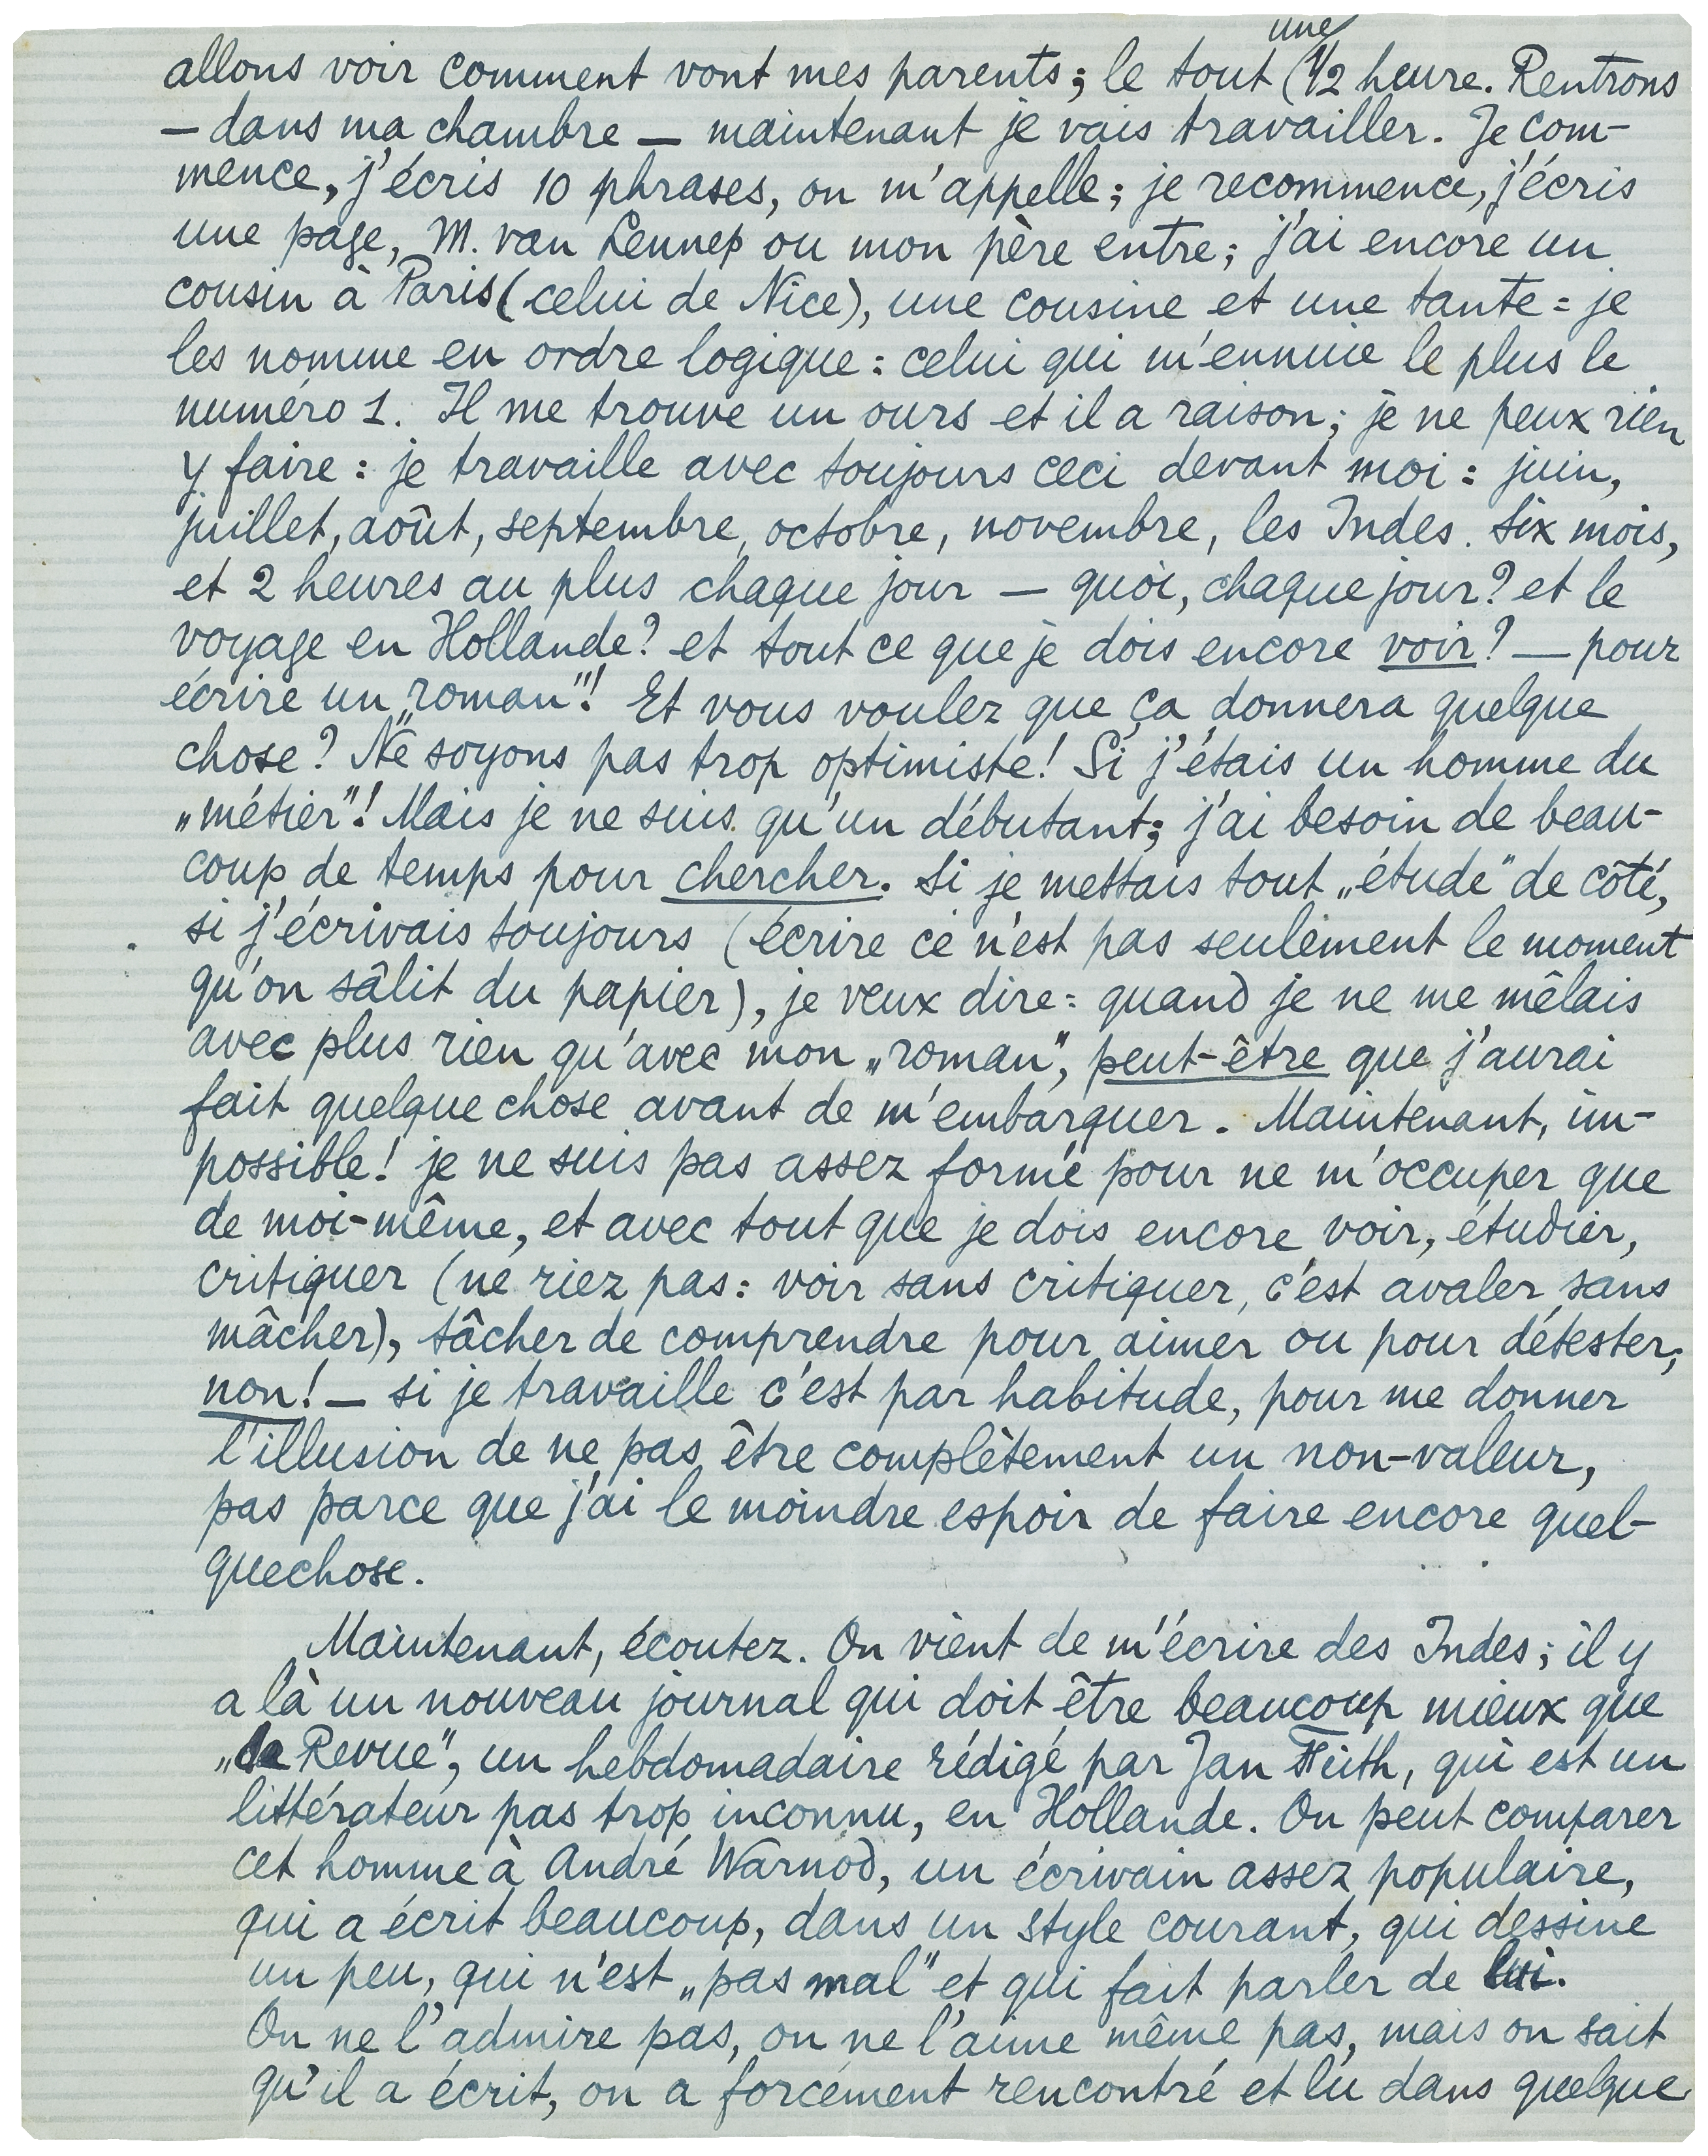 allons voir comment vont mes parents; le tout (une 1/2 heure. Rentrons
— dans ma chambre — maintenant je vais travailler. Je com-
mence, j'écris 10 phrases, on m'appelle; je recommence, j'écris
une page, M. van Lennep ou mon père entre; j'ai encore un
cousin à Paris (celui de Nice), une cousine et une tante = je
les nomme en ordre logique: celui qui m'ennuie le plus le
numéro 1. Il me trouve un ours et il a raison; je ne peux rien
y faire: je travaille avec toujours ceci devant moi: juin,
juillet, août, septembre, octobre, novembre, les Indes. Six mois,
et 2 heures au plus chaque jour — quoi, chaque jour? et le
voyage en Hollande? et tout ce que je dois encore voir? — pour
écrire un „roman"! Et vous voulez que ça donnera quelque
chose? Ne soyons pas trop optimiste! Si j'étais un homme du
„métier"! Mais je ne suis qu'un débutant; j'ai besoin de beau-
coup de temps pour chercher. Si je mettais tout „étude" de côté,
si j'écrivais toujours (écrire ce n'est pas seulement le moment
qu'on sâlit du papier), je veux dire: quand je ne me mêlais
avec plus rien qu'avec mon „roman", peut-être que j'aurai
fait quelque chose avant de m'embarquer. Maintenant, im-
possible! je ne suis pas assez formé pour ne m'occuper que
de moi-même, et avec tout que je dois encore voir, étudier,
critiquer (ne riez pas: voir sans critiquer, c'est avaler sans
mâcher), tâcher de comprendre pour aimer ou pour détester;
non! — si je travaille c'est par habitude, pour me donner
l'illusion de ne pas être complètement un non-valeur,
pas parce que j'ai le moindre espoir de faire encore quel-
quechose.
Maintenant, écoutez. On vient de m'écrire des Indes; il y
a là un nouveau journal qui doit être beaucoup mieux que
„la Revue", un hebdomadaire rédigé par Jan Feith, qui est un
littérateur pas trop inconnu, en Hollande. On peut comparer
cet homme à André Warnod, un écrivain assez populaire,
qui a écrit beaucoup, dans un style courant, qui dessine
un peu, qui n'est „pas mal" et qui fait parler de lui.
On ne l'admire pas, on ne l'aime même pas, mais on sait
qu'il a écrit, on a forcément rencontré et lu dans quelque